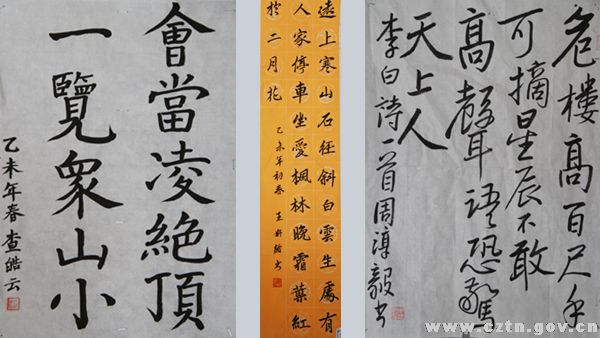 會當凌絶頂
一覽衆山小
乙未年春 查皓云
遠上寒山石徑斜白雲生處有
人家停車坐愛楓林晚霜葉紅
於二月花
乙未年初春 王 书
危樓高百尺手
可摘星辰不敢
高聲語恐驚
天上人
李白詩一首周淳毅书
www.cztn.gov.cn